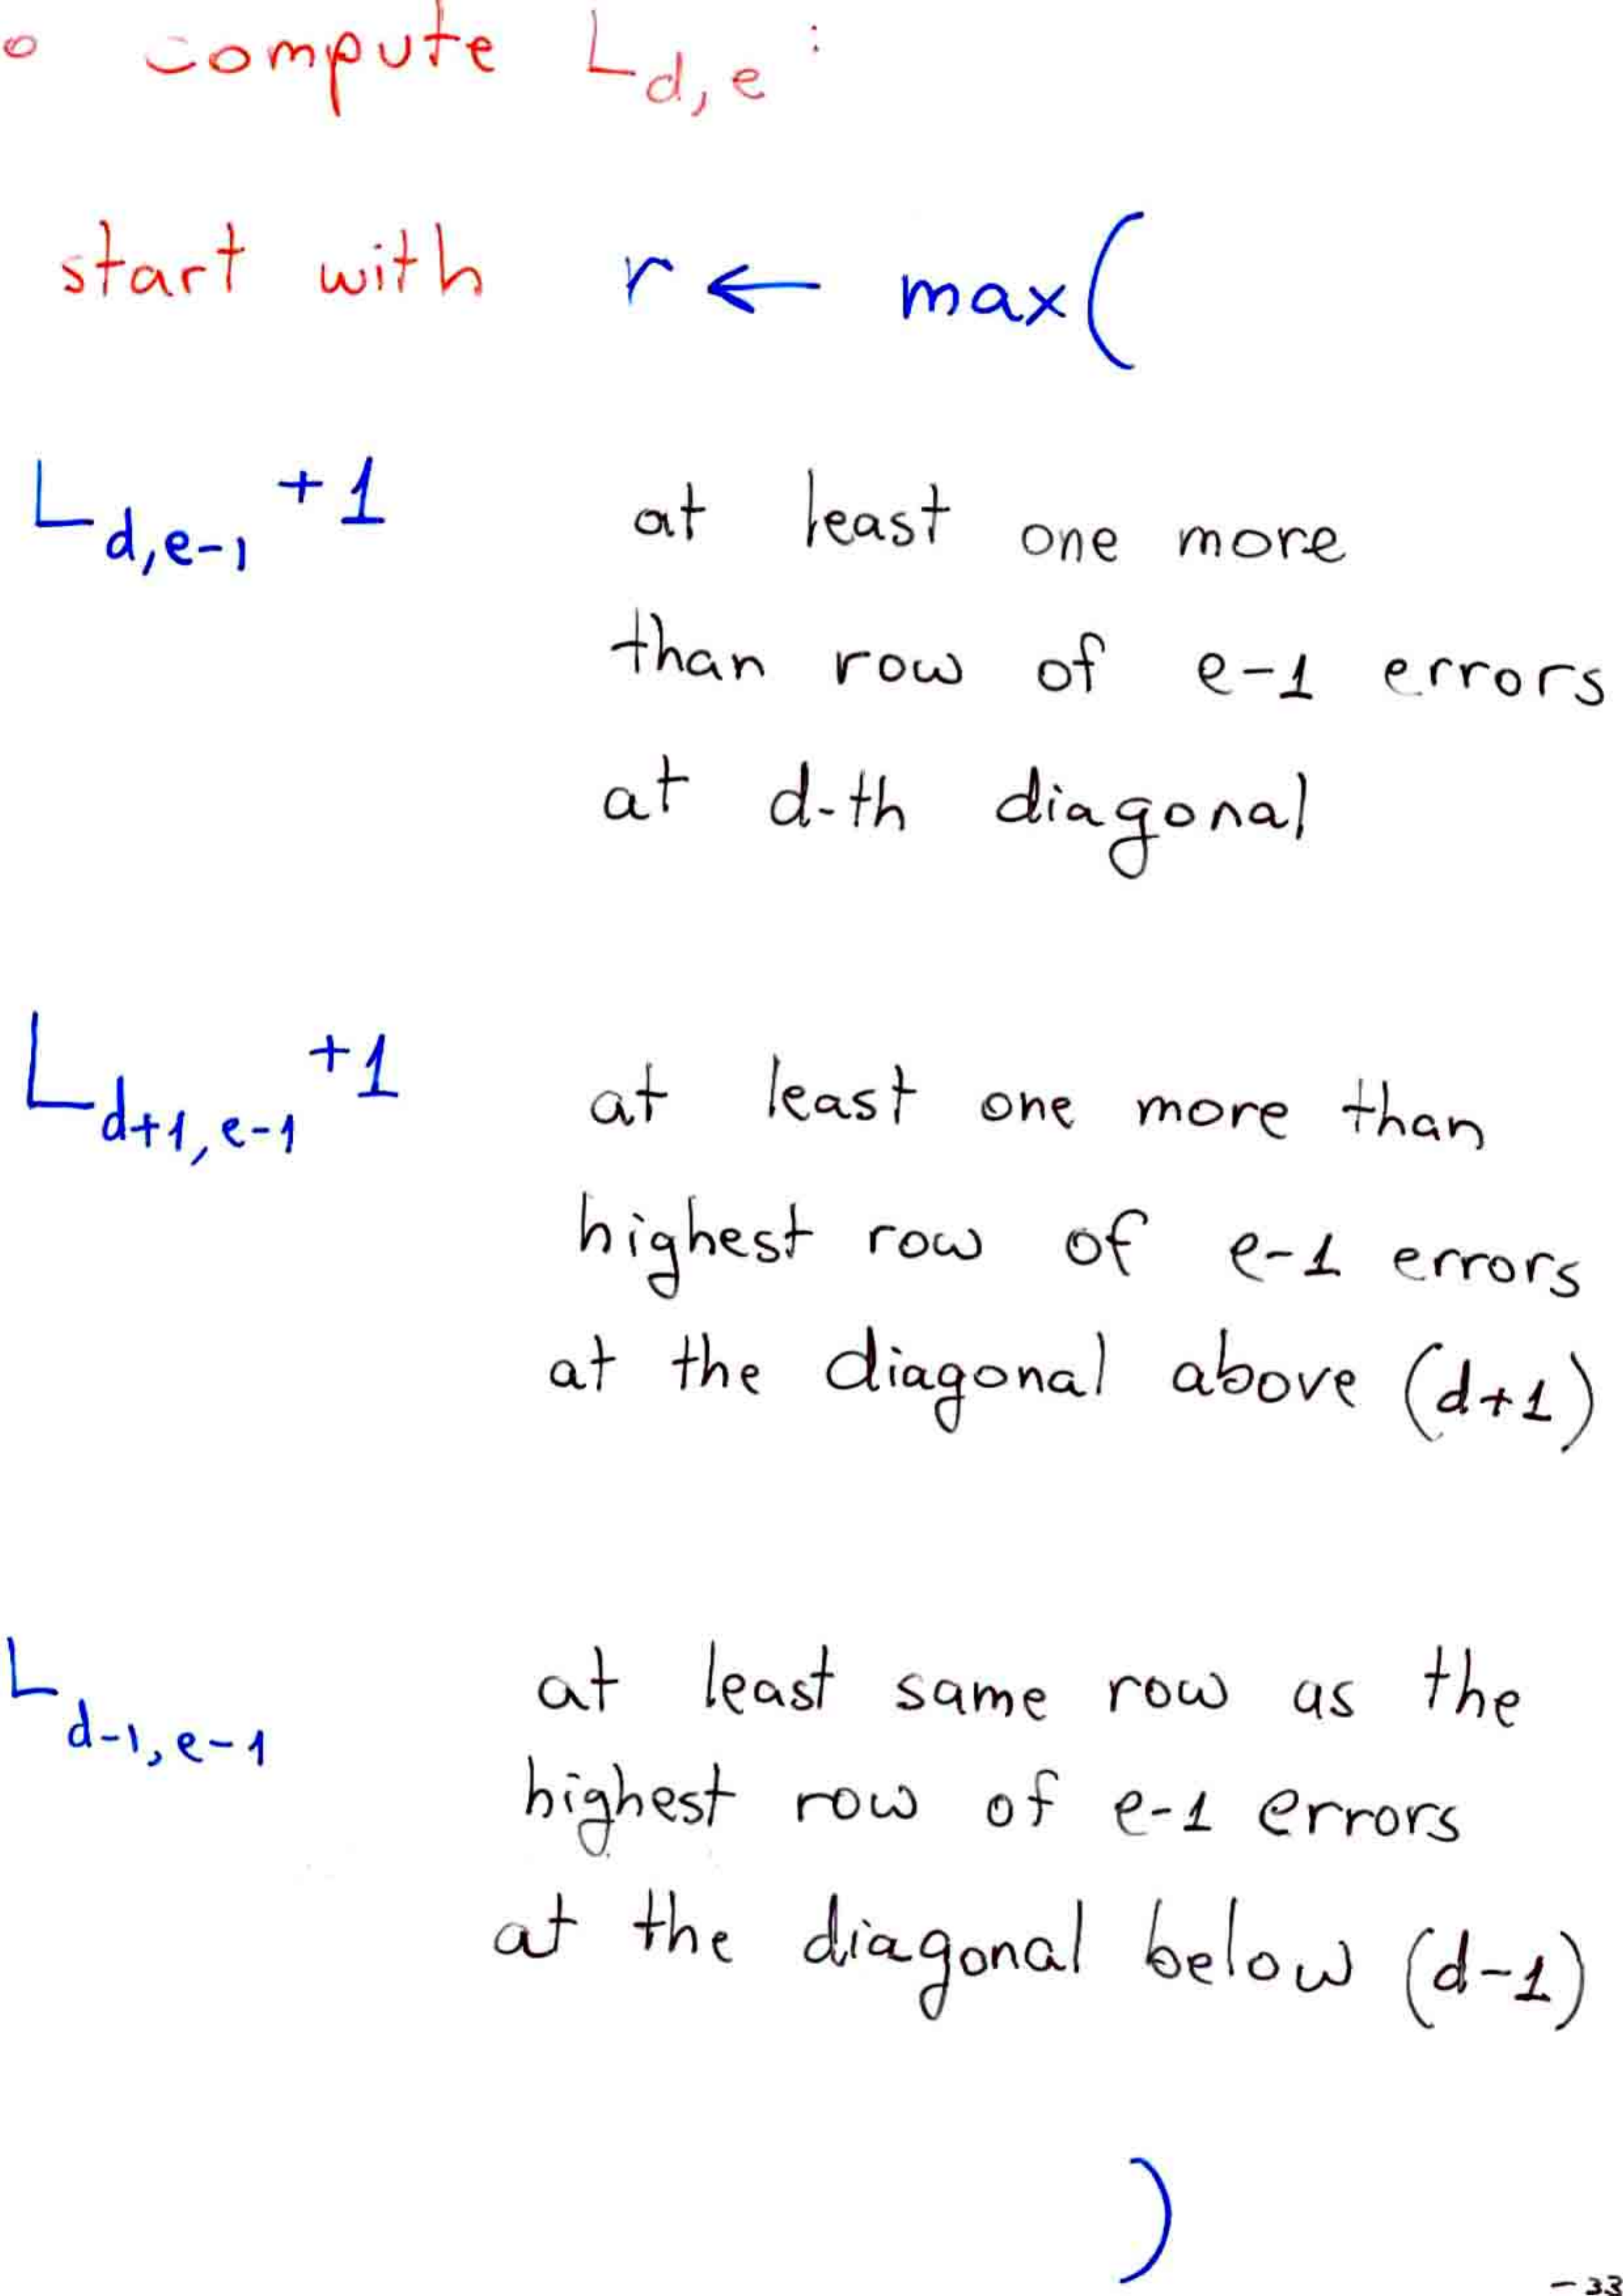 o compute L_{d,e} :
start with r ← max(
L_{d,e-1} +1 at least one more
than row of e-1 errors
at d-th diagonal
L_{d+1,e-1} +1 at least one more than
highest row of e-1 errors
at the diagonal above (d+1)
L_{d-1,e-1} at least same row as the
highest row of e-1 errors
at the diagonal below (d-1)
)
-33